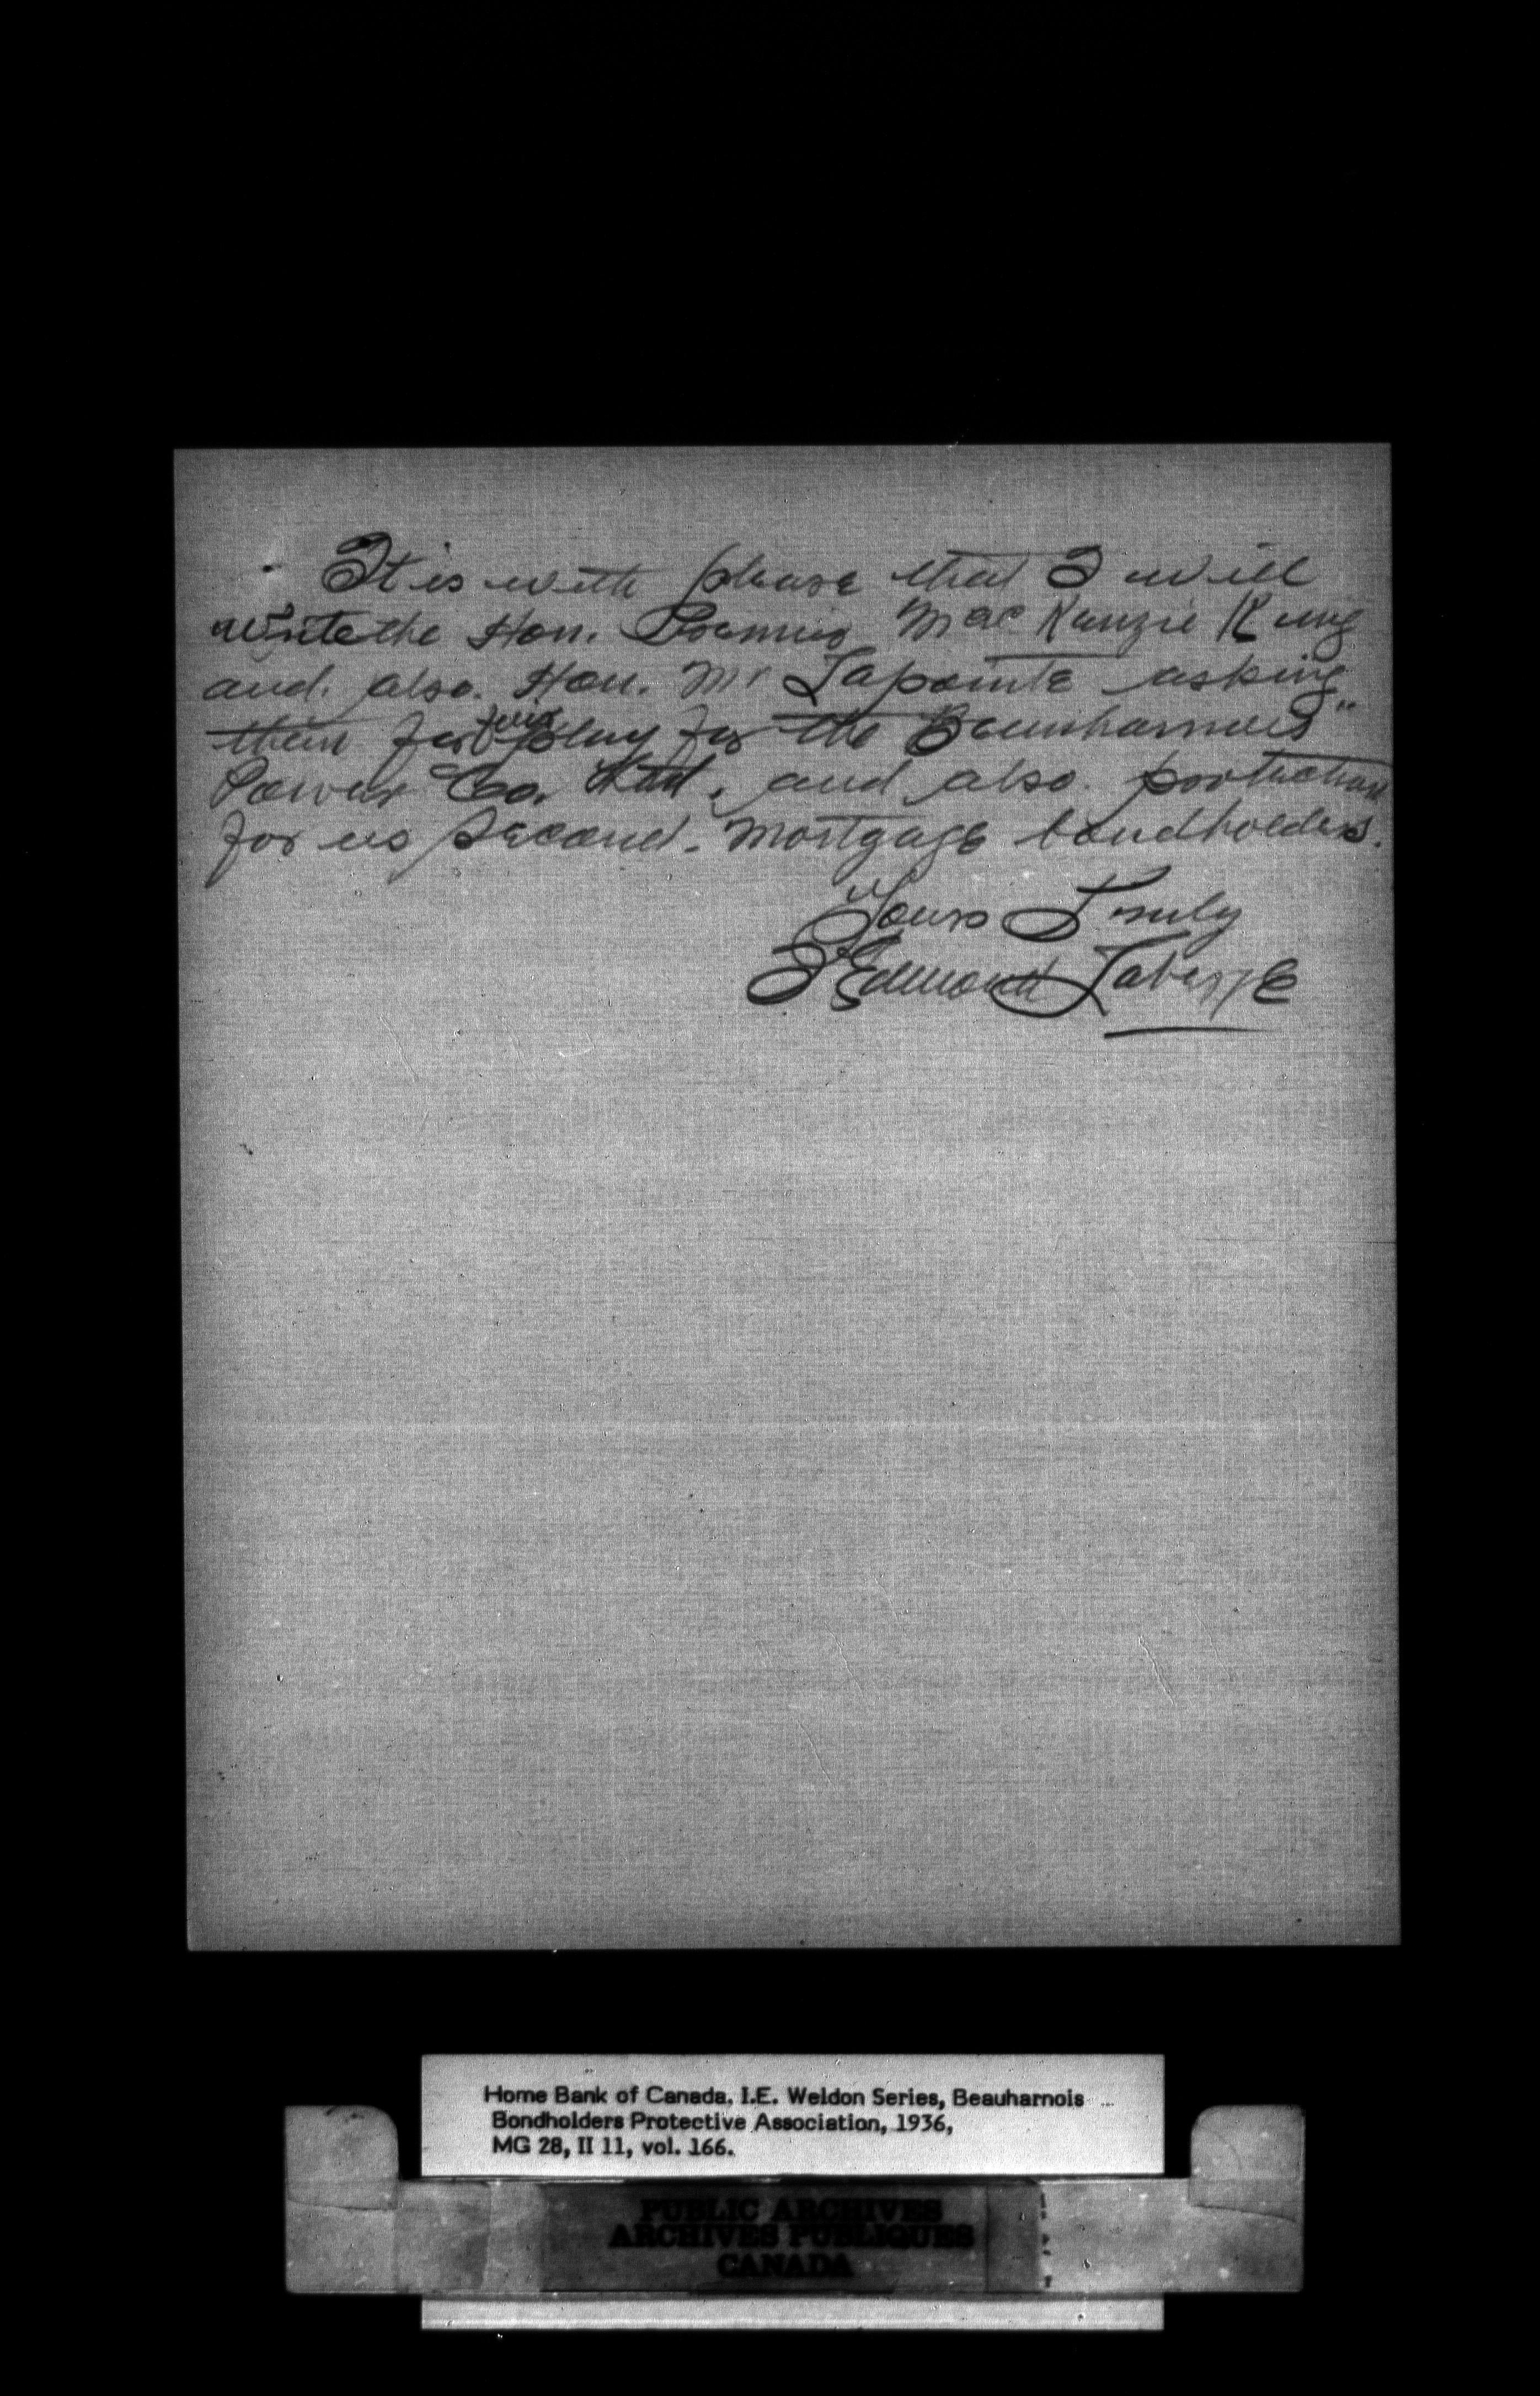 It is with please that I will
write the Hon. Premier MacKenzie King
and. also. Hon. Mr Lapointe asking
them for fair play for the Beauharnois"
Power Co. Ltd. and also. protection
for us second. mortgage bondholders.
Yours Truly
J Edmond Laberge
Home Bank of Canada, I.E. Weldon Series, Beauharnois
Bondholders Protective Association, 1936,
MG 28, II 11, vol. 166.
PUBLIC ARCHIVES
ARCHIVES PUBLIQUES
CANADA